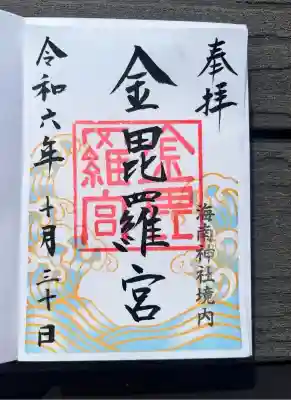 奉拝
海南神社境内
金毘羅宮
金毘羅宮
令和六年 十月三十日